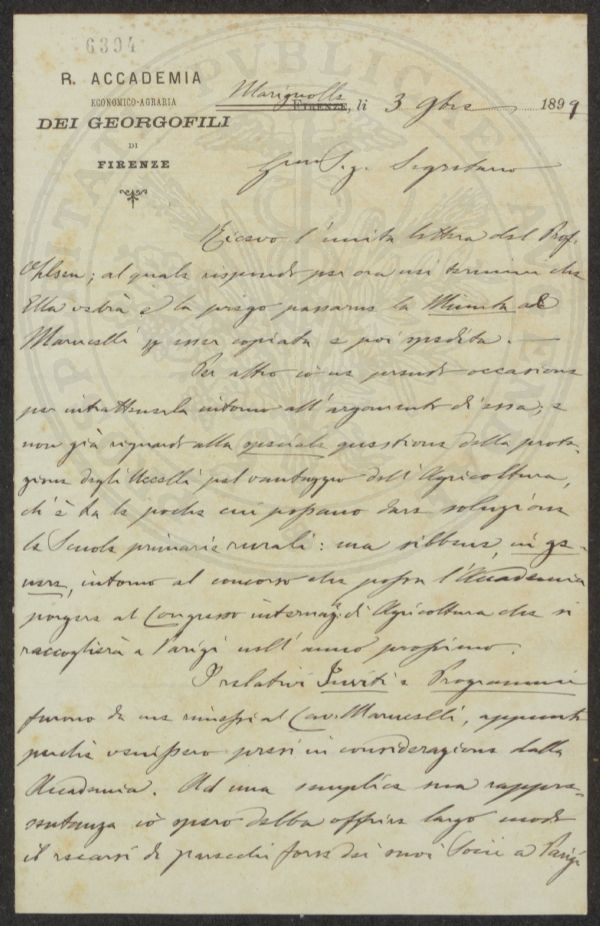 6304
R. ACCADEMIA
ECONOMICO-AGRARIA
DEI GEORGOFILI
DI
FIRENZE
Marignolle
FIRENZE, li 3 9bre 1899
Sig. Segretario
Ricevo l'unita lettera del Prof.
Ohlsen; al quale rispondo per ora nei termini che
Ella vedrà e la prego passarne la Minuta al
Marucelli p esser copiata e poi spedita. —
Per altro io ne prendo occasione
per intrattenerla intorno all'argomento di essa; e
non già riguardo alla speciale questione della prote-
zione degli Uccelli pel vantaggio dell'Agricoltura,
ch'è tra le poche cui possano dare soluzione
le Scuole primarie rurali: ma sibbene, in ge-
nere, intorno al concorso che possa l'Accademia
porgere al Congresso internaz. di Agricoltura che si
raccoglierà a Parigi nell'anno prossimo.
I relativi Inviti e Programmi
furono da me rimessi al Cav. Marucelli, appunto
perchè venissero presi in considerazione dalla
Accademia. Ad una semplice sua rappre-
sentanza io spero debba offrire largo modo
il recarsi di parecchi forse dei suoi Socii a Parigi